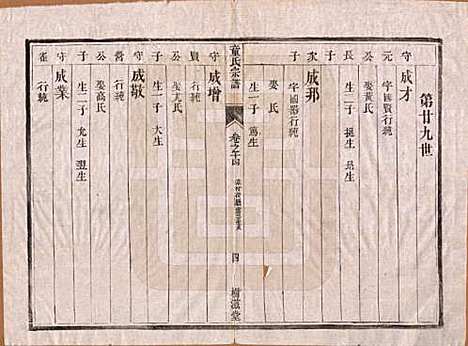 第廿九世
守元公長子 成才
字國賢行統
娶黃氏
生二子 挺生 是生
守元公次子 成邦
字國器行統
娶 氏
生一子 篤生
童氏宗譜
卷之十四
四
樹滋堂
守賢公子 成增
行統
娶尤氏
生一子 大生
守富公子 成敬
行統
娶高氏
生二子 允生 望生
守 成業
行統